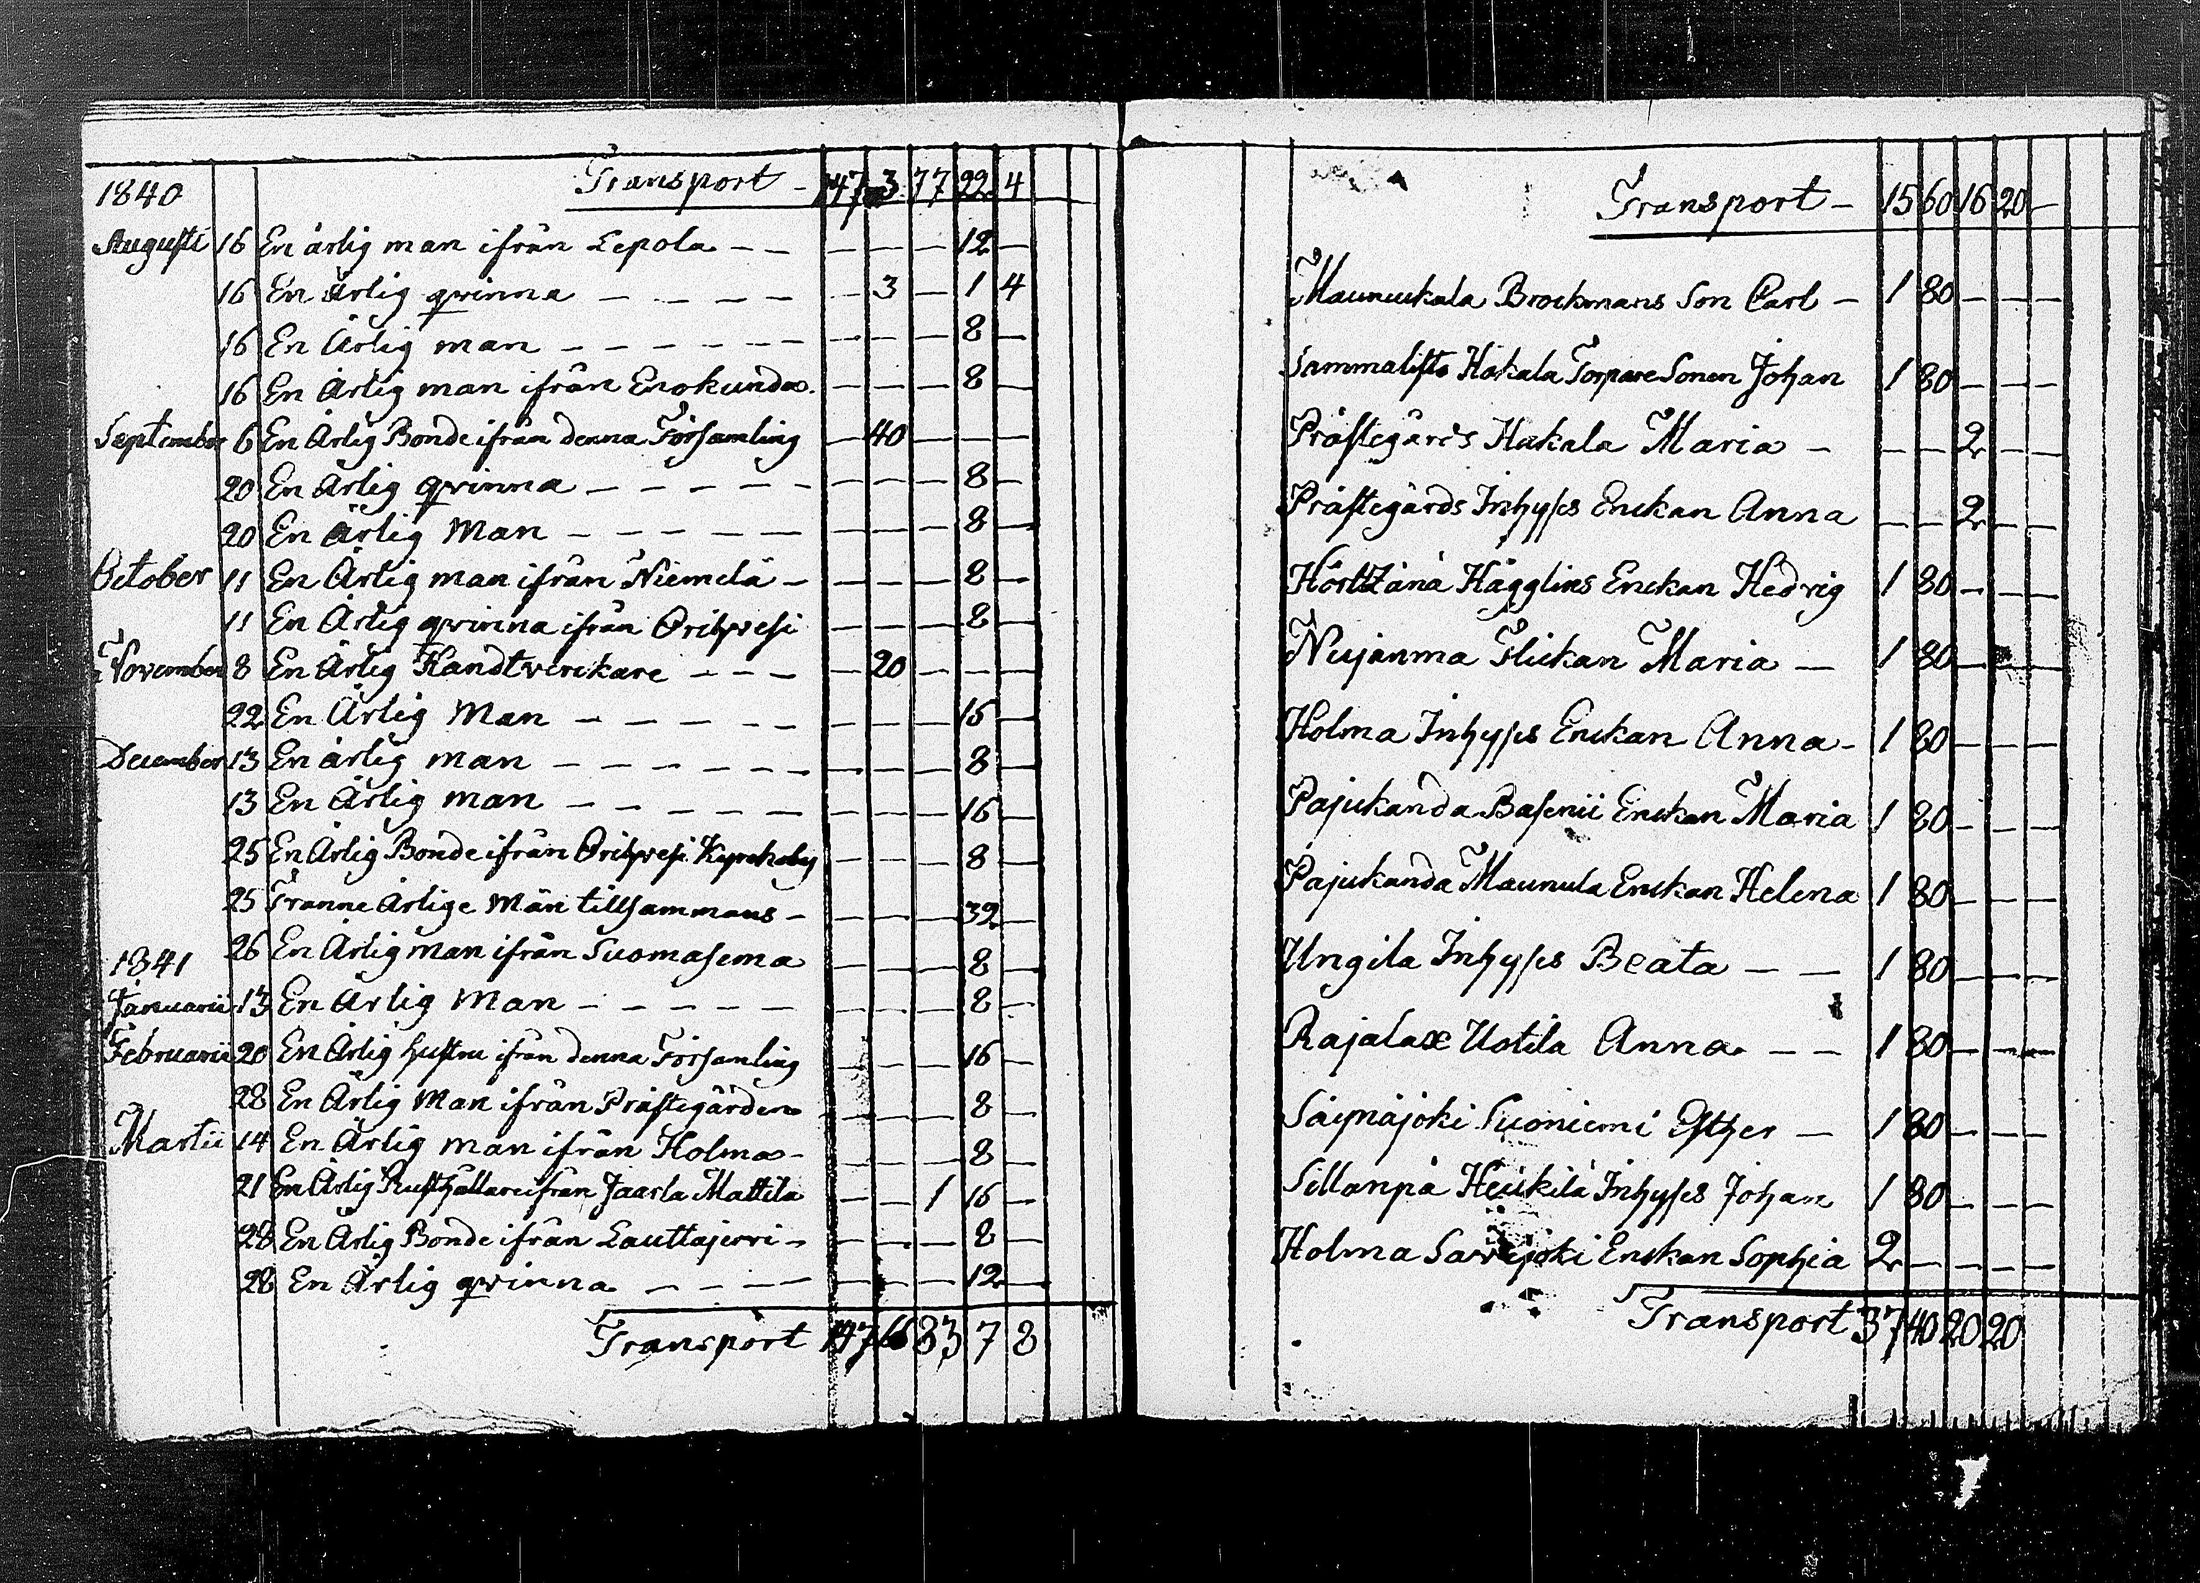 1840 Transport - 147 3 77 22 4
Augusti 16 En ärlig man ifrån Lepola - - - - - 12 -
16 En Ärlig qvinna - - - - - - 3 - 1 4
16 En Ärlig man - - - - - - - - - 8 -
16 En Ärlig man ifrån Enokunda - - - 8 -
September 6 En Ärlig Bonde ifrån denna Församling - 40 - - -
20 En Ärlig qvinna - - - - - - - - 8 -
20 En Ärlig Man - - - - - - - - 8 -
October 11 En Ärlig man ifrån Niemelä - - - - 8 -
11 En Ärlig qvinna ifrån Orihvesi - - - 8 -
November 8 En Ärlig Handtverckare - - - - 20 - - -
22 En Ärlig Man - - - - - - - - 15 -
December 13 En ärlig man - - - - - - - - - 8 -
13 En Ärlig man - - - - - - - - 16 -
25 En Ärlig Bonde ifrån Orihvesi Kyrckoby - - - 8 -
25 Tränne Ärlige Män tillsammans - - - - 32 -
26 En Ärlig man ifrån Suomasema - - - 8 -
1841
Januarii 13 En Ärlig Man - - - - - - - - 8 -
Februarii 20 En Ärlig hustru ifrån denna Församling - - - 16 -
28 En Ärlig Man ifrån Prästegården - - - 8 -
Martii 14 En Ärlig man ifrån Holma - - - - 8 -
21 En Ärlig Rusthållare ifrån Jaarla Mattila - - 1 16 -
28 En Ärlig Bonde ifrån Lauttajervi - - - - 8 -
28 En Ärlig qvinna - - - - - - - 12 -
Transport 147 66 83 7 8
Transport - 15 60 16 20 -
Maunuckala Brockmans Son Carl - 1 80 - - -
Sammalisto Hakala Torpare Sonen Johan 1 80 - - -
Prästegårds Hakala Maria - - - 2 - -
Prästegårds Inhyses Enckan Anna - - 2 - -
Hägglins Enckan Hedvig 1 80 - - -
Nujanma Flickan Maria - 1 80 - - -
Holma Inhyses Enckan Anna - 1 80 - - -
Pajukanda Basenii Enckan Maria 1 80 - - -
Pajukanda Maunula Enckan Helena 1 80 - - -
Ungila Inhyses Beata - - 1 80 - - -
Rajalax Uotila Anna - - 1 80 - - -
Säynäjoki Suoniemi Esther - 1 80 - - -
Sillanpä Heickilä Inhyses Johan 1 80 - - -
Holma Savijoki Enckan Sophia 2 - - - -
Transport 37 40 20 20